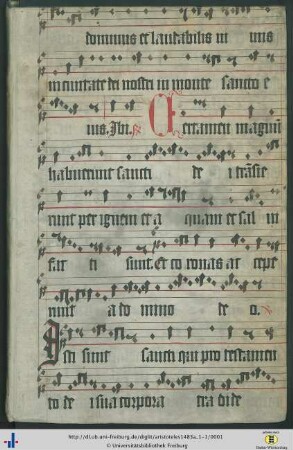 dominus et laudabilis in mis
in ciuitate dei nostri in monte sancto e
ius. Ibi. Certamen magnū
habuerunt sancti de i trāsie
runt per ignem et a quam et sal ua
fac ti sunt. Et co ronas ac cepe
runt a do mino de o.
Isti sunt sancti qui pro testamen
to de i sua corpora tra di de
http://dl.ub.uni-freiburg.de/diglit/aristoteles1483a_1-1/0001
© Universitätsbibliothek Freiburg